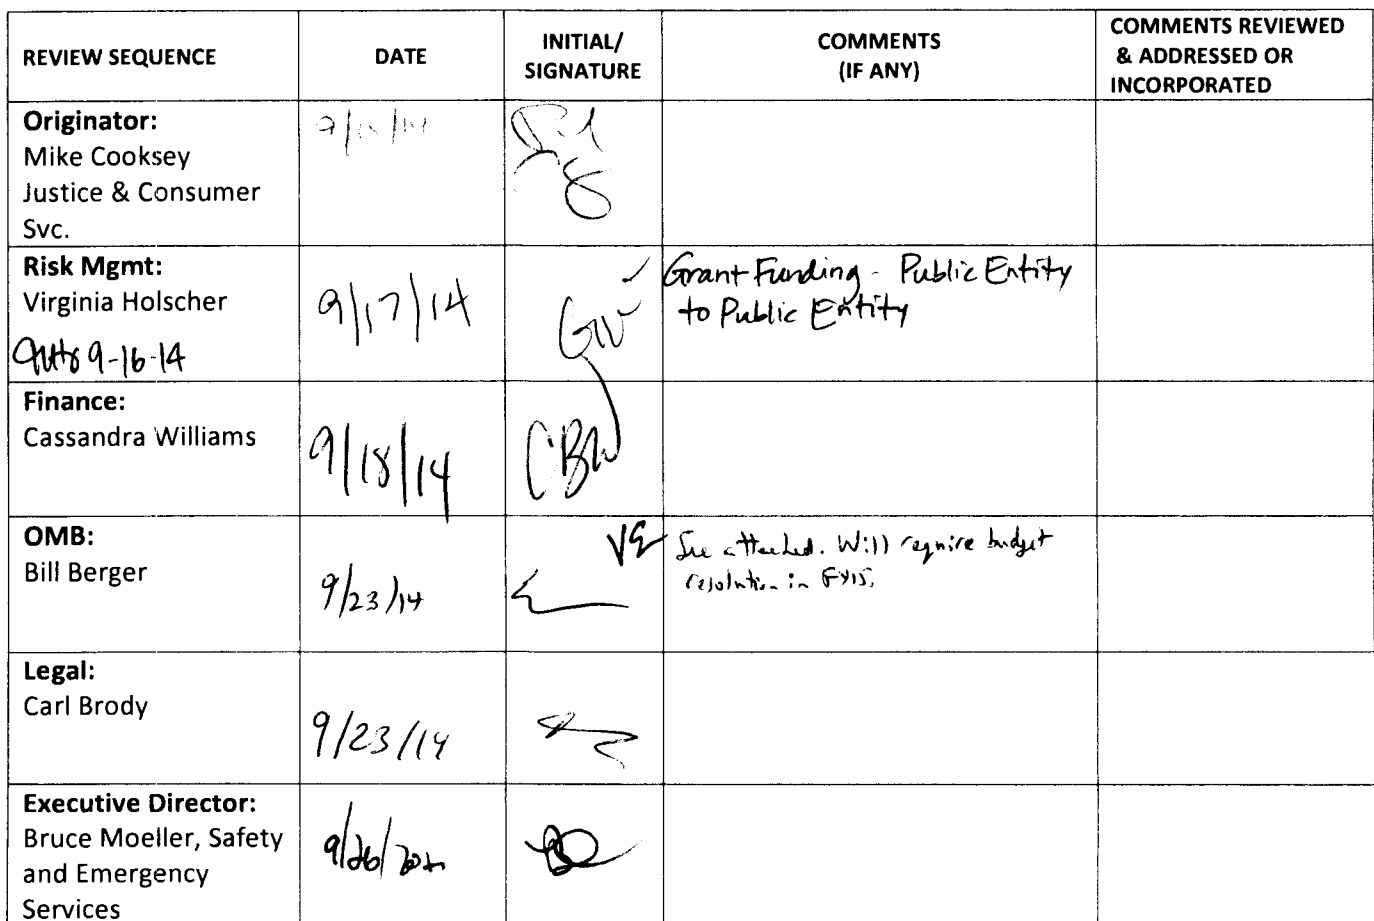 REVIEW SEQUENCE
DATE
INITIAL/
SIGNATURE
COMMENTS
(IF ANY)
COMMENTS REVIEWED
& ADDRESSED OR
INCORPORATED
Originator:
Mike Cooksey
Justice & Consumer
Svc.
Risk Mgmt:
Virginia Holscher
9-16-14
9/17/14
Grant Funding - Public Entity
to Public Entity
Finance:
Cassandra Williams
9/18/14
CBW
OMB:
Bill Berger
9/23/14
See attached. Will require budget
resolution in FY15.
Legal:
Carl Brody
9/23/14
Executive Director:
Bruce Moeller, Safety
and Emergency
Services